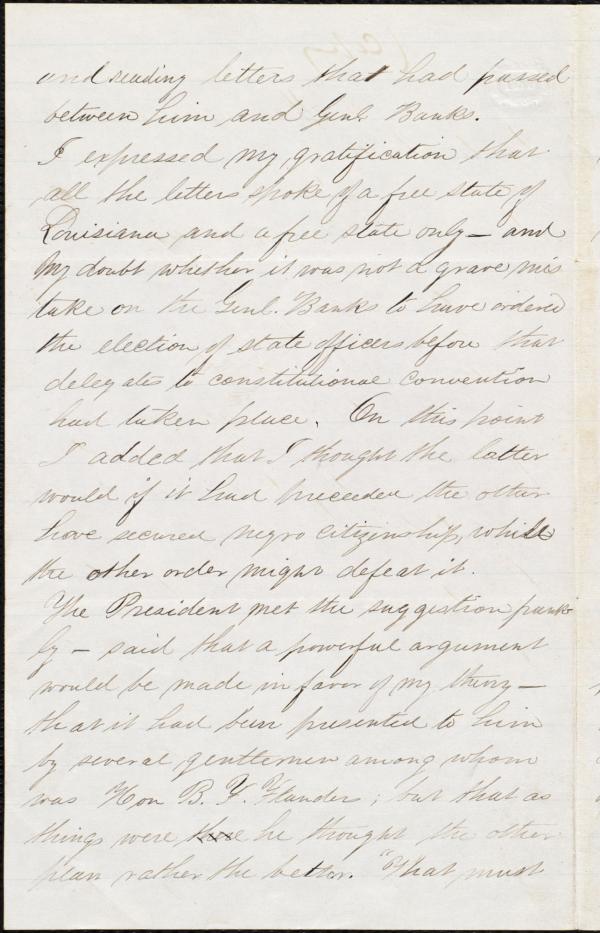 and reading letters that had passed
between him and Genl Banks.
I expressed my gratification that
all the letters spoke of a free state of
Louisiana and a free state only — and
my doubt whether it was not a grave mis
take on the Genl. Banks to have ordered
the election of state officers before that
delegates to constitutional convention
had taken place. On this point
I added that I thought the latter
would if it had preceeded the other
have secured negro citizenship, while
the other order might defeat it.
The President met the suggestion frank
ly — said that a powerful argument
would be made in favor of my theory —
that it had been presented to him
by several gentlemen among whom
was Hon B. F. Flanders; but that as
things were he thought the other
plan rather the better. "That must